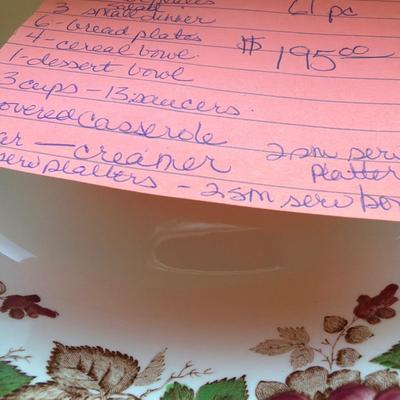 salad
3 small dinner 61 pc
6-bread plates
4-cereal bowl $195.00
1-dessert bowl
3 cups - 13 saucers.
overed casserole
ar - creamer 2 sm serv
Platter
serv platters - 2 sm serv bow